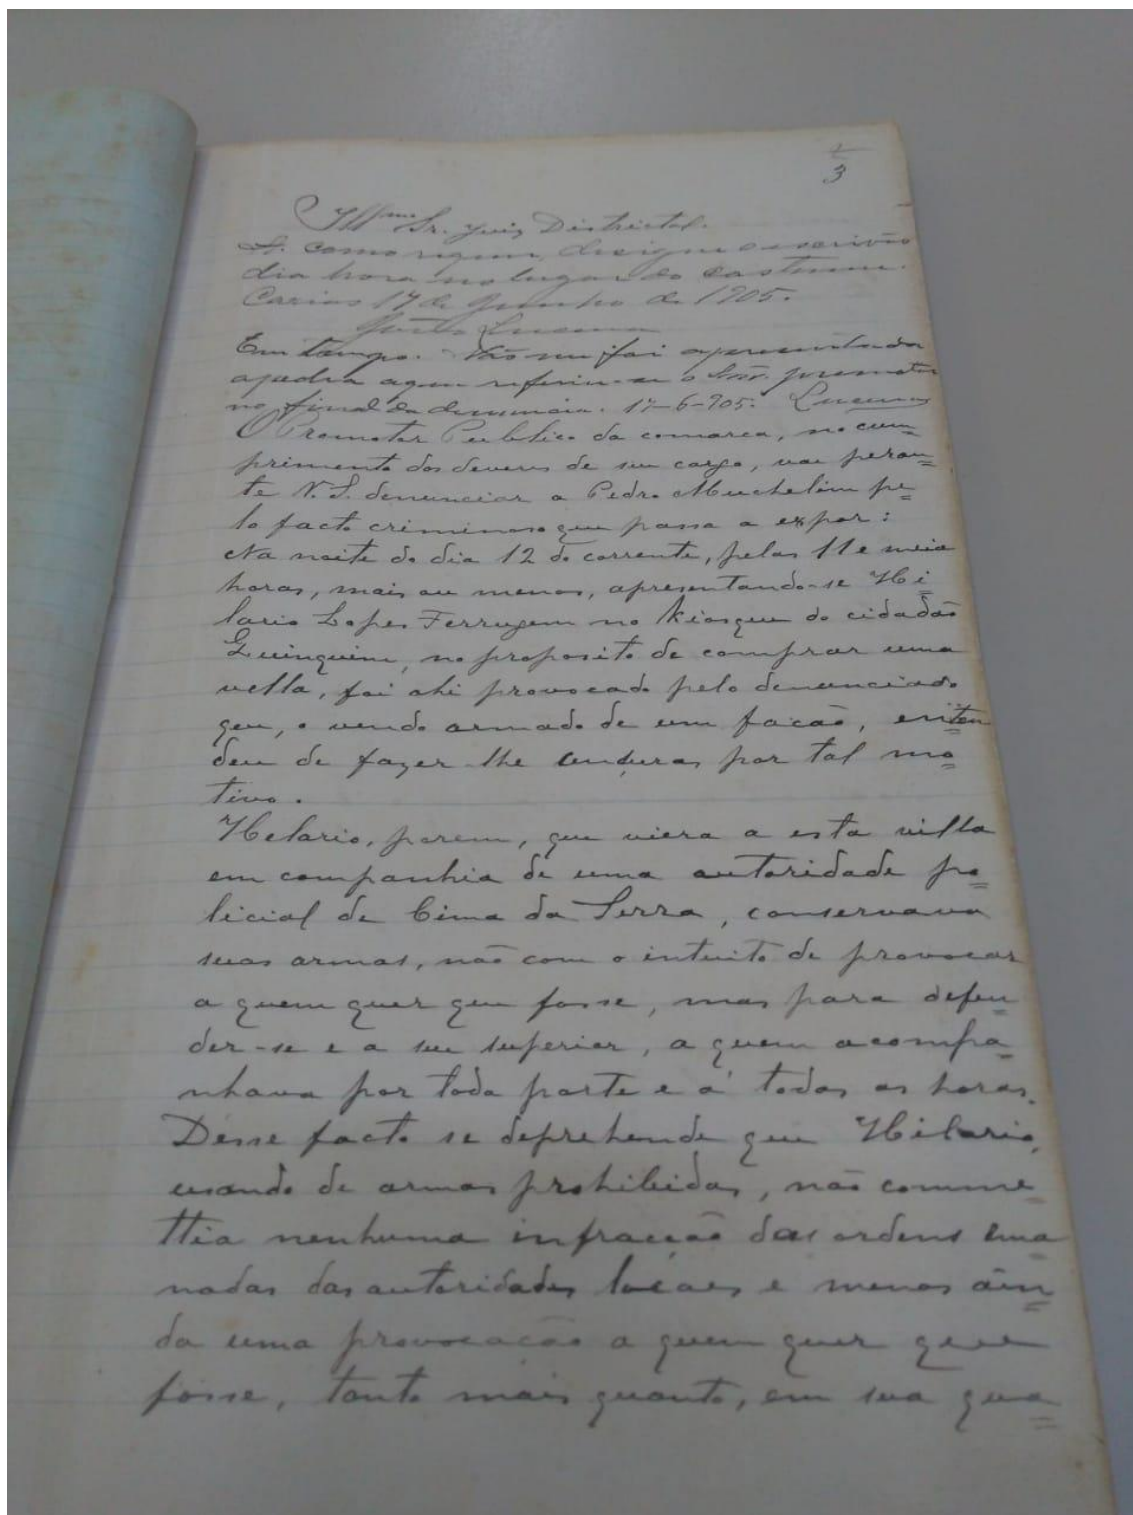 1
3
Illmo Sr. Juiz Districtal.
A. como requer, designe o escrivão
dia hora no lugar do costume.
Caxias 17 de Junho de 1905.
Lucena
Em tempo. Não me foi apresentada
a pedra a que refere-se o Snr. promotor
no final da denuncia. 17-6-905. Lucena
O Promotor Publico da comarca, no cum=
primento dos deveres de seu cargo, vae peran=
te V. S. denunciar a Pedro Muchelim pe=
lo facto criminoso que passa a expor:
Na noite do dia 12 do corrente, pelas 11 e meia
horas, mais ou menos, apresentando-se Hi=
lario Lopes Ferrugem no kiosque do cidadão
Guinguine, no proposito de comprar uma
vella, foi ahi provocado pelo denunciado
que, o vendo armado de um facão, enten=
deu de fazer-lhe censuras por tal mo=
tivo.
Helario, porem, que viera a esta villa
em companhia de uma autoridade po=
licial de Cima da Serra, conservava
suas armas, não com o intuito de provocar
a quem quer que fosse, mas para defen=
der-se e a seu superior, a quem acompa=
nhava por toda parte e á todas as horas.
Desse facto se deprehende que Hilario,
usando de armas prohibidas, não comme=
ttia nenhuma infracção das ordens ema
nadas das autoridades locaes e menos ain=
da uma provocação a quem quer que
fosse, tanto mais quanto, em sua qua=